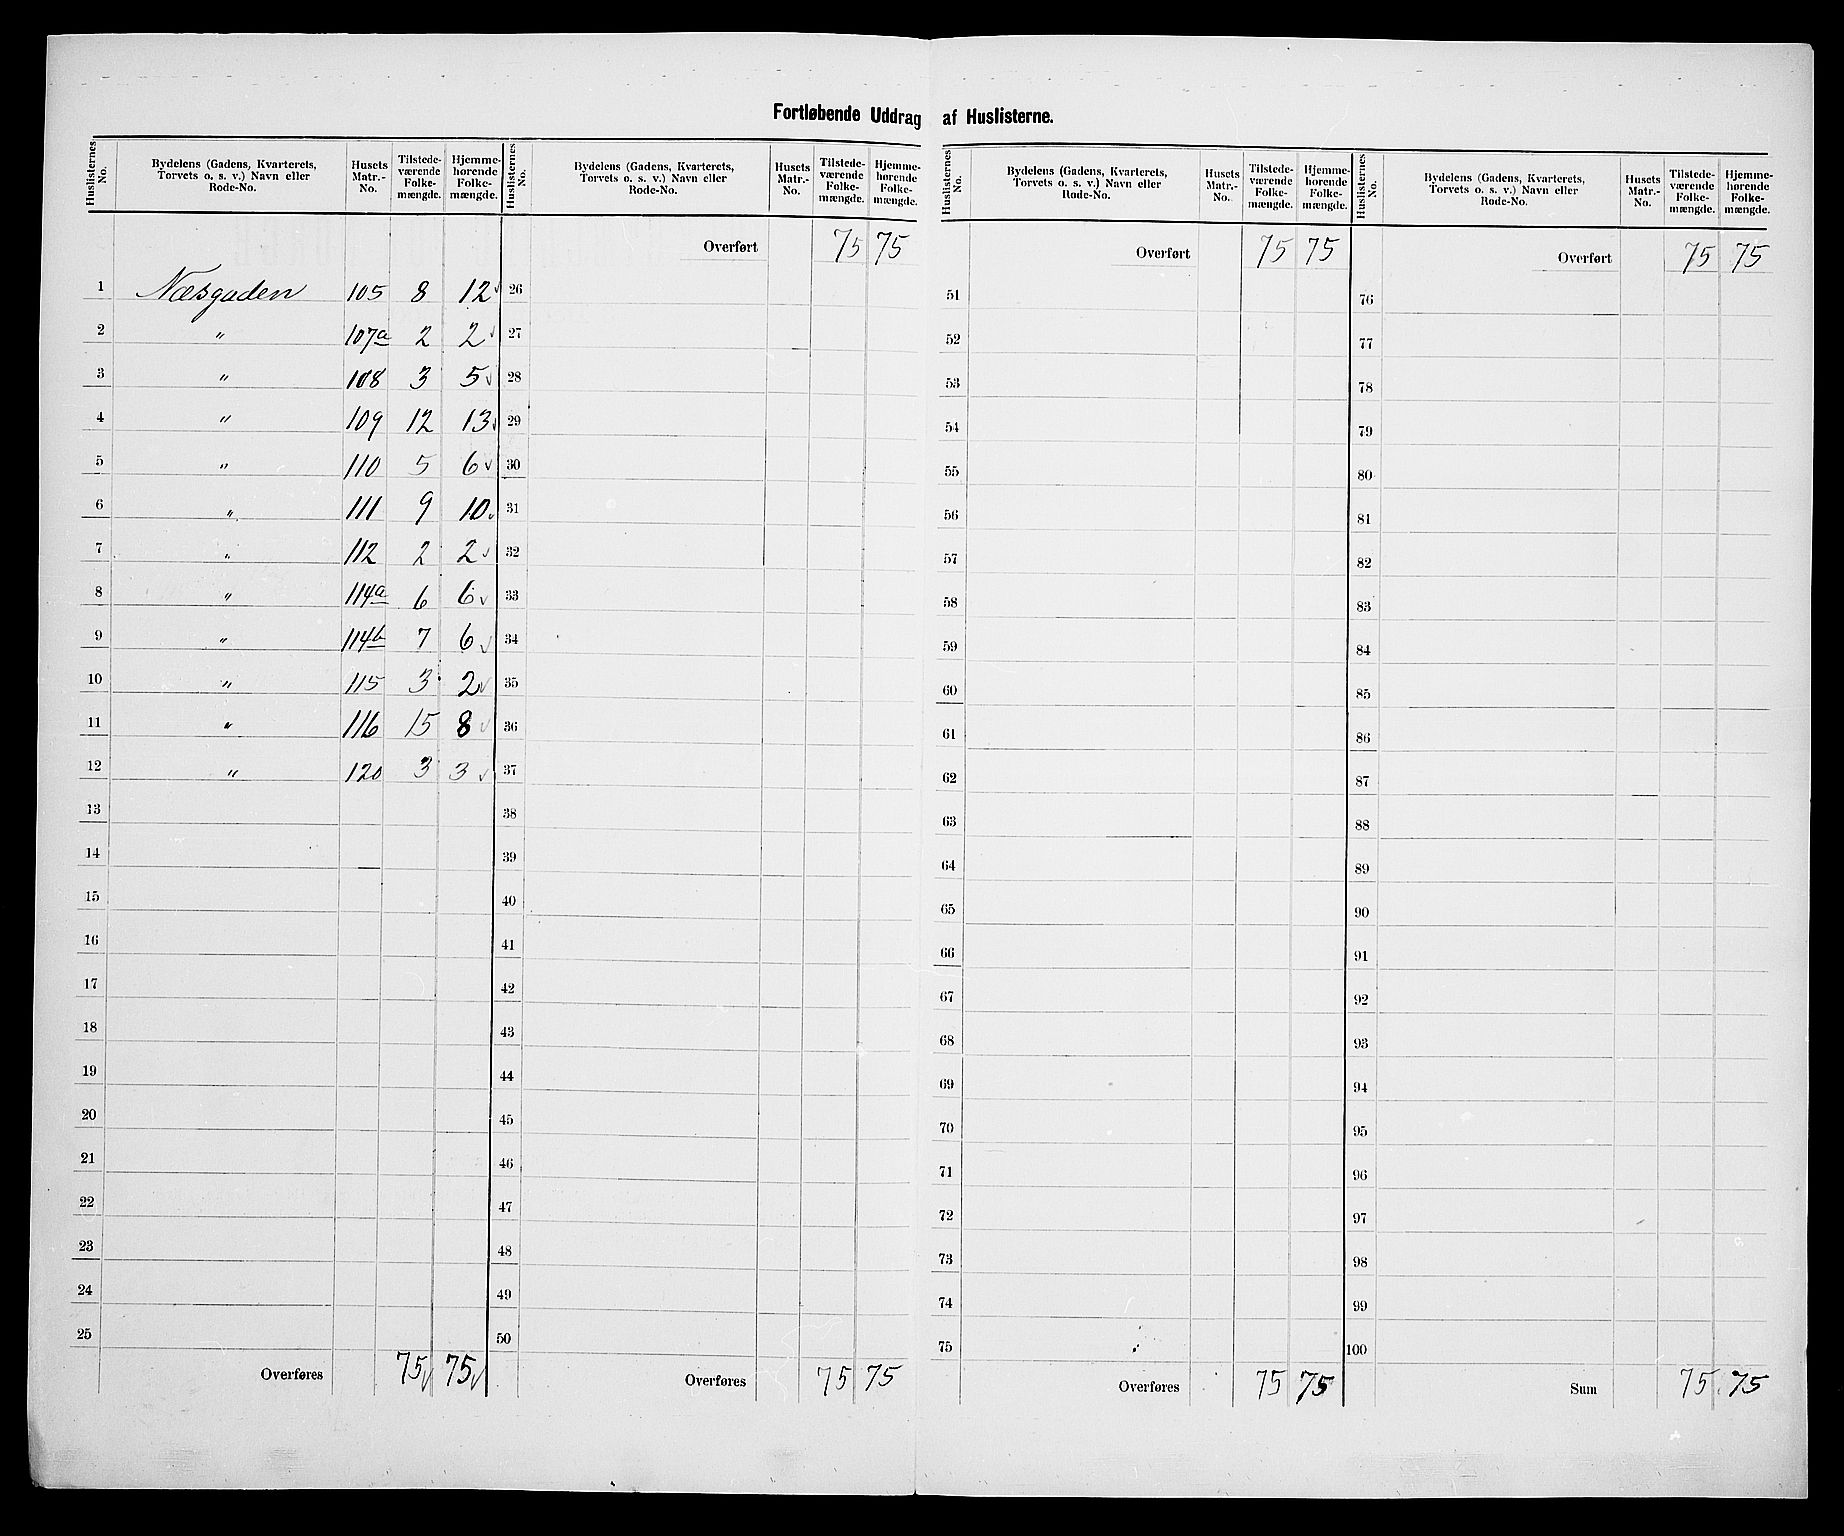 Fortløbende Uddrag af Huslisterne.
Huslisternes No. | Bydelens (Gadens, Kvarterets, Torvets o. s. v.) Navn eller Rode-No. | Husets Matr.-No. | Tilstedeværende Folkemængde. | Hjemmehørende Folkemængde.
1 Næsgaden 105 8 12 ✓
2 " 107a 2 2 ✓
3 " 108 3 5 ✓
4 " 109 12 13 ✓
5 " 110 5 6 ✓
6 " 111 9 10 ✓
7 " 112 2 2 ✓
8 " 114a 6 6 ✓
9 " 114b 7 6 ✓
10 " 115 3 2 ✓
11 " 116 15 8 ✓
12 " 120 3 3 ✓
13
14
15
16
17
18
19
20
21
22
23
24
25
Overføres 75 ✓ 75 ✓
Huslisternes No. | Bydelens (Gadens, Kvarterets, Torvets o. s. v.) Navn eller Rode-No. | Husets Matr.-No. | Tilstedeværende Folkemængde. | Hjemmehørende Folkemængde.
Overført 75 75
26
27
28
29
30
31
32
33
34
35
36
37
38
39
40
41
42
43
44
45
46
47
48
49
50
Overføres 75 75
Huslisternes No. | Bydelens (Gadens, Kvarterets, Torvets o. s. v.) Navn eller Rode-No. | Husets Matr.-No. | Tilstedeværende Folkemængde. | Hjemmehørende Folkemængde.
Overført 75 75
51
52
53
54
55
56
57
58
59
60
61
62
63
64
65
66
67
68
69
70
71
72
73
74
75
Overføres 75 75
Huslisternes No. | Bydelens (Gadens, Kvarterets, Torvets o. s. v.) Navn eller Rode-No. | Husets Matr.-No. | Tilstedeværende Folkemængde. | Hjemmehørende Folkemængde.
Overført 75 75
76
77
78
79
80
81
82
83
84
85
86
87
88
89
90
91
92
93
94
95
96
97
98
99
100
Sum 75 75